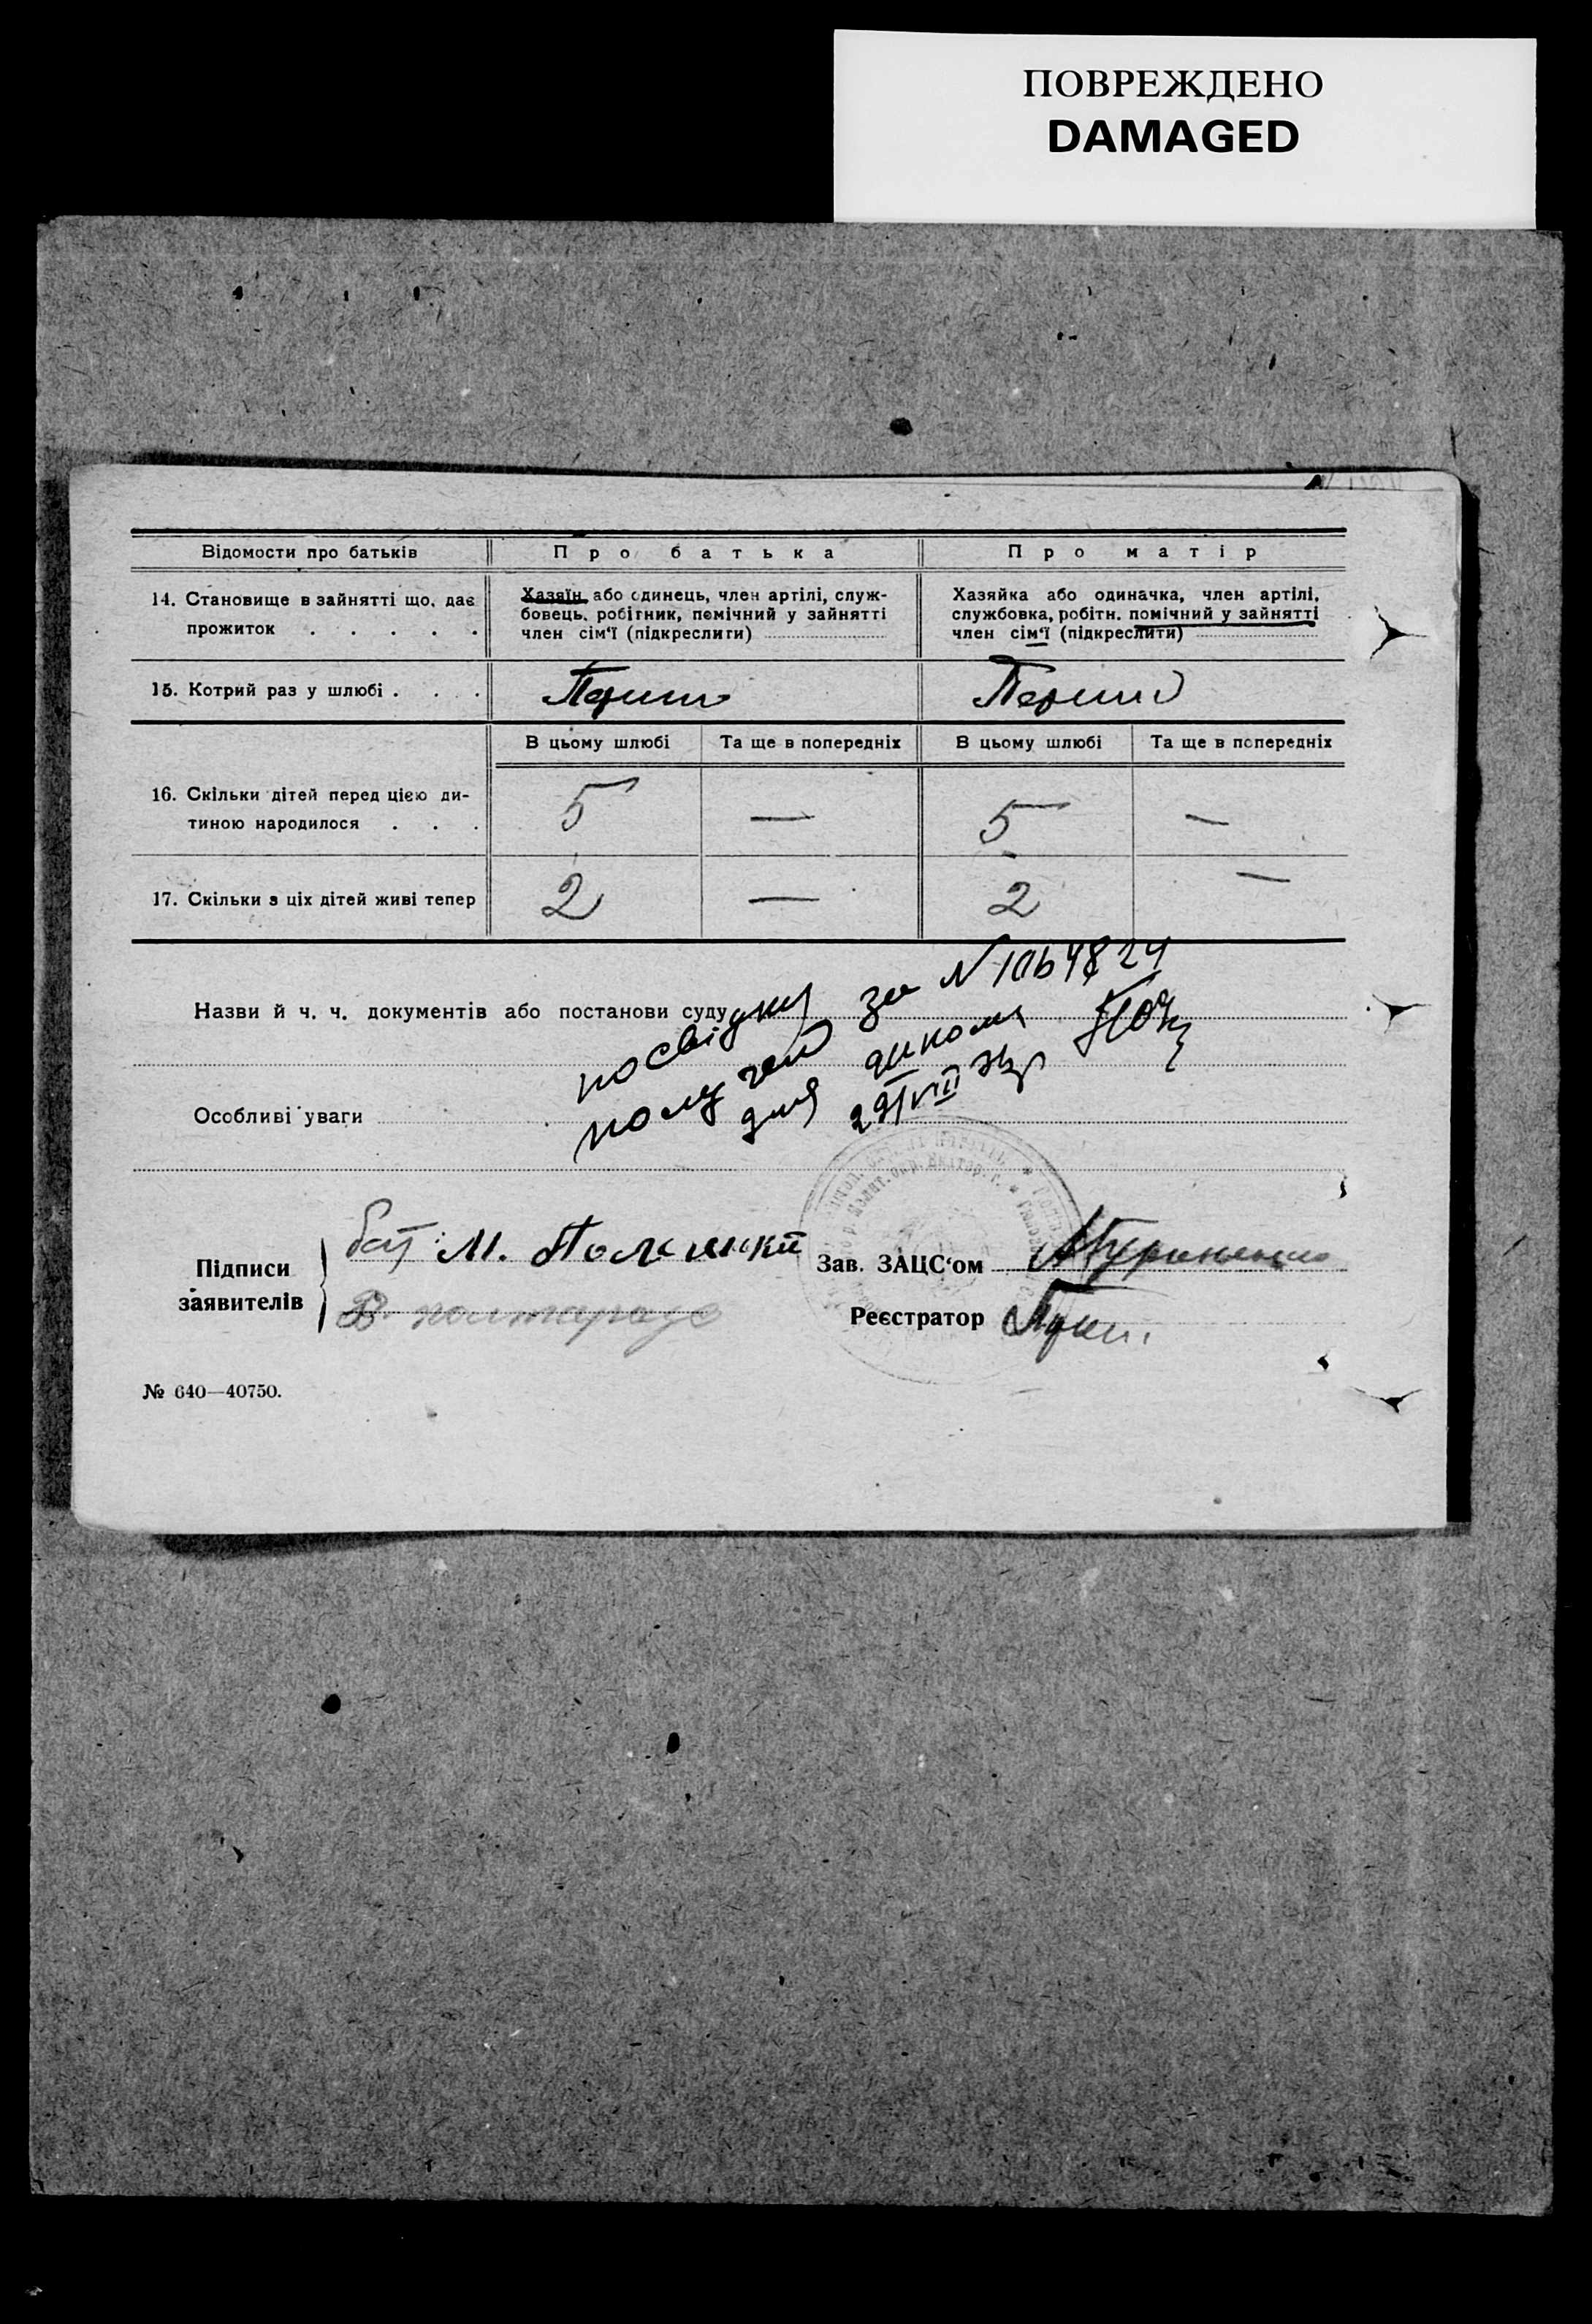 ПОВРЕЖДЕНО
DAMAGED
Відомости про батьків
Про батька
Про матір
14. Становище в зайнятті що, дає
прожиток . . . . .
Хазяїн або одинець, член артілі, служ-
бовець, робітник, помічний у зайнятті
член сім'ї (підкреслити)
Хазяйка або одиначка, член артілі,
службовка, робітн. помічний у зайнятті
член сім'ї (підкреслити)
15. Котрий раз у шлюбі . . . .
В цьому шлюбі
Та ще в попередніх
В цьому шлюбі
Та ще в попередніх
16. Скільки дітей перед цією ди-
тиною народилося . . .
5 — 5 —
17. Скільки з ціх дітей живі тепер
2 — 2 —
Назви й ч. ч. документів або постанови суду
Особливі уваги
посвідку за N
для
Підписи
заявителів
бат: М.
Зав. ЗАЦС'ом
Реєстратор
№ 640—40750.